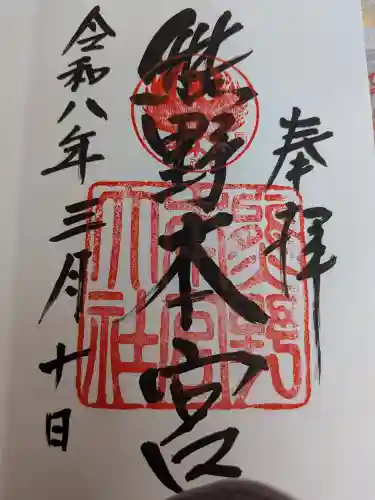 奉拝
熊野本宮
令和八年三月十日
熊野本宮大社